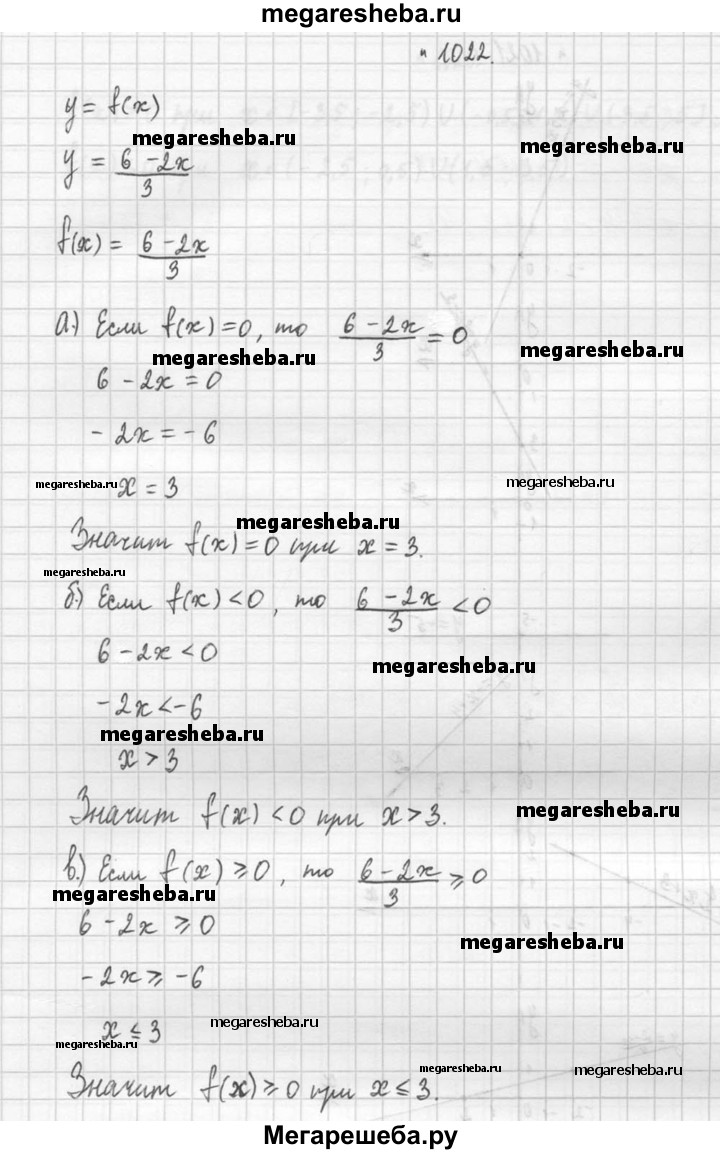 megaresheba.ru
№ 1022.
y = f(x)
megaresheba.ru
megaresheba.ru
y = (6 - 2x)/3
f(x) = (6 - 2x)/3
а.) Если f(x) = 0, то (6 - 2x)/3 = 0
megaresheba.ru
megaresheba.ru
6 - 2x = 0
- 2x = - 6
megaresheba.ru x = 3 megaresheba.ru
megaresheba.ru
Значит f(x) = 0 при x = 3.
megaresheba.ru
б.) Если f(x) < 0, то (6 - 2x)/3 < 0
6 - 2x < 0
megaresheba.ru
- 2x < - 6
megaresheba.ru
x > 3
Значит f(x) < 0 при x > 3.
megaresheba.ru
в.) Если f(x) ⩾ 0, то (6 - 2x)/3 ⩾ 0
megaresheba.ru
6 - 2x ⩾ 0
megaresheba.ru
- 2x ⩾ - 6
x ≤ 3 megaresheba.ru
megaresheba.ru
megaresheba.ru megaresheba.ru
Значит f(x) ⩾ 0 при x ≤ 3.
Мегарешеба.ру